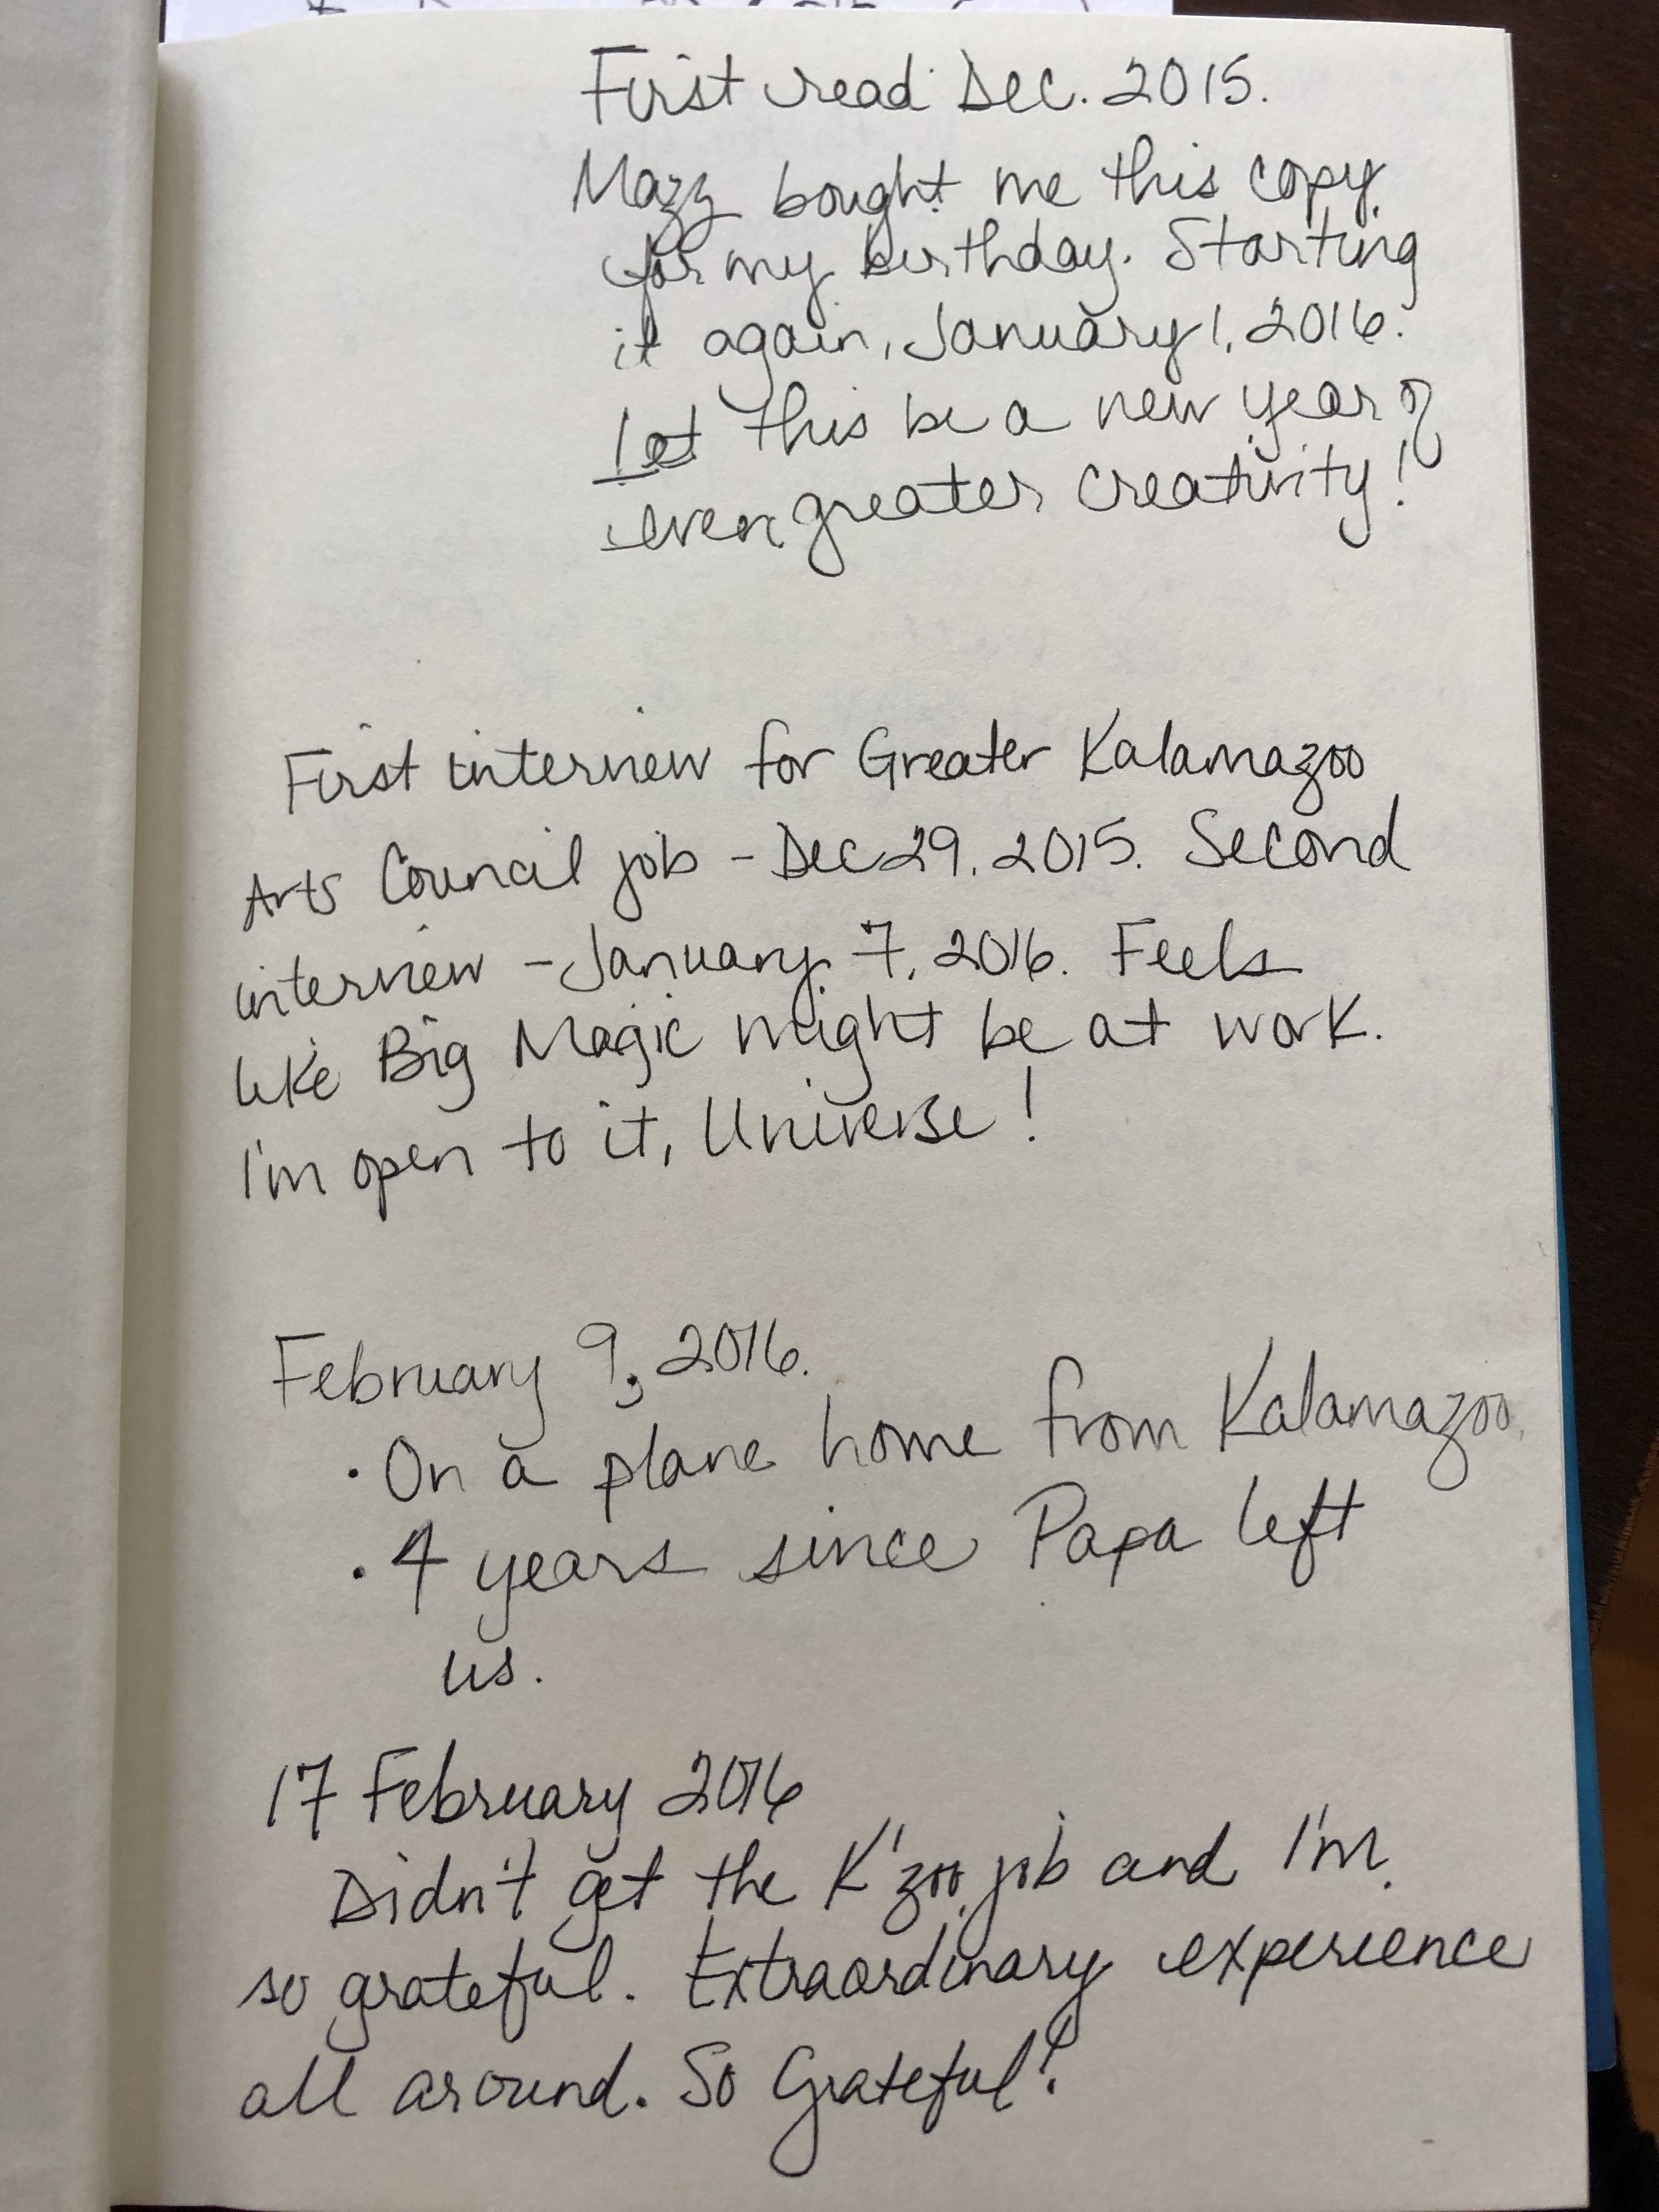 First read Dec. 2015.
Mazz bought me this copy
for my birthday. Starting
it again, January 1, 2016.
Let this be a new year of
even greater creativity!
First interview for Greater Kalamazoo
Arts Council job - Dec 29, 2015. Second
interview - January 7, 2016. Feels
like Big Magic might be at work.
I'm open to it, Universe!
February 9, 2016.
• On a plane home from Kalamazoo.
• 4 years since Papa left
us.
17 February 2016
Didn't get the K'zoo job and I'm
so grateful. Extraordinary experience
all around. So Grateful!